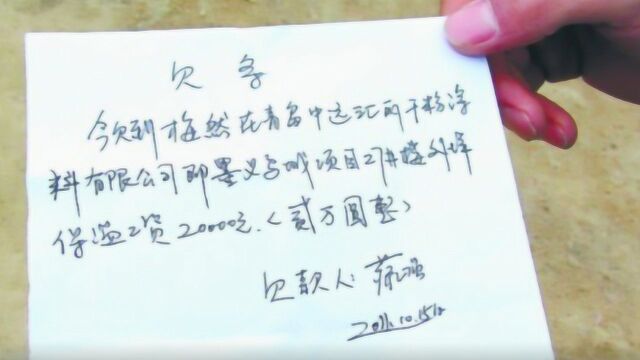 欠条
今欠到梅然在青岛中远汇丽干粉涂
料有限公司即墨义乌城项目2#楼外墙
保温工资20000元.(贰万圆整)
欠款人: